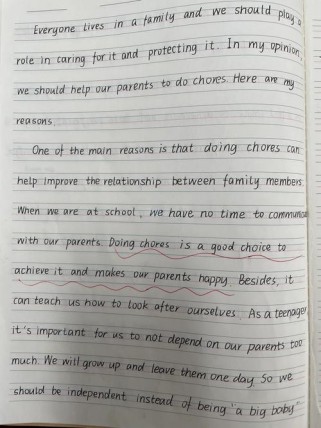 Everyone lives in a family and we should play a
role in caring for it and protecting it. In my opinion,
we should help our parents to do chores Here are my
reasons.
One of the main reasons is that doing chores can
help improve the relationship between family members.
When we are at school, we have no time to communicate
with our parents. Doing chores is a good choice to
achieve it and makes our parents happy. Besides, it
can teach us how to look after ourselves. As a teenager
it's important for us to not depend on our parents too
much. We will grow up and leave them one day. So we
should be independent instead of being "a big baby"